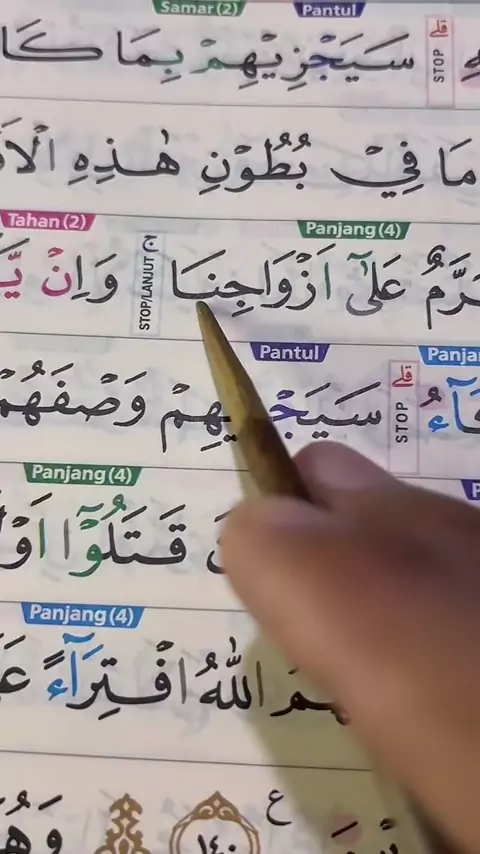 Samar (2) Pantul
سَيَجْزِيْهِمْ بِمَا كَا
STOP قلى
مَا فِيْ بُطُوْنِ هٰذِهِ الْاَ
Tahan (2) Panjang (4)
رَّمٌ عَلٰٓى اَزْوَاجِنَا وَاِنْ يَّ
STOP/LANJUT ج
Pantul Panja
آءُ سَيَجْ يْهِمْ وَصْفَهُمْ
STOP قلى
Panjang (4) P
قَتَلُوْٓا اَوْ
Panjang (4)
اللّٰهُ افْتِرَآءً عَ
ع
١٤٠ وَهُ